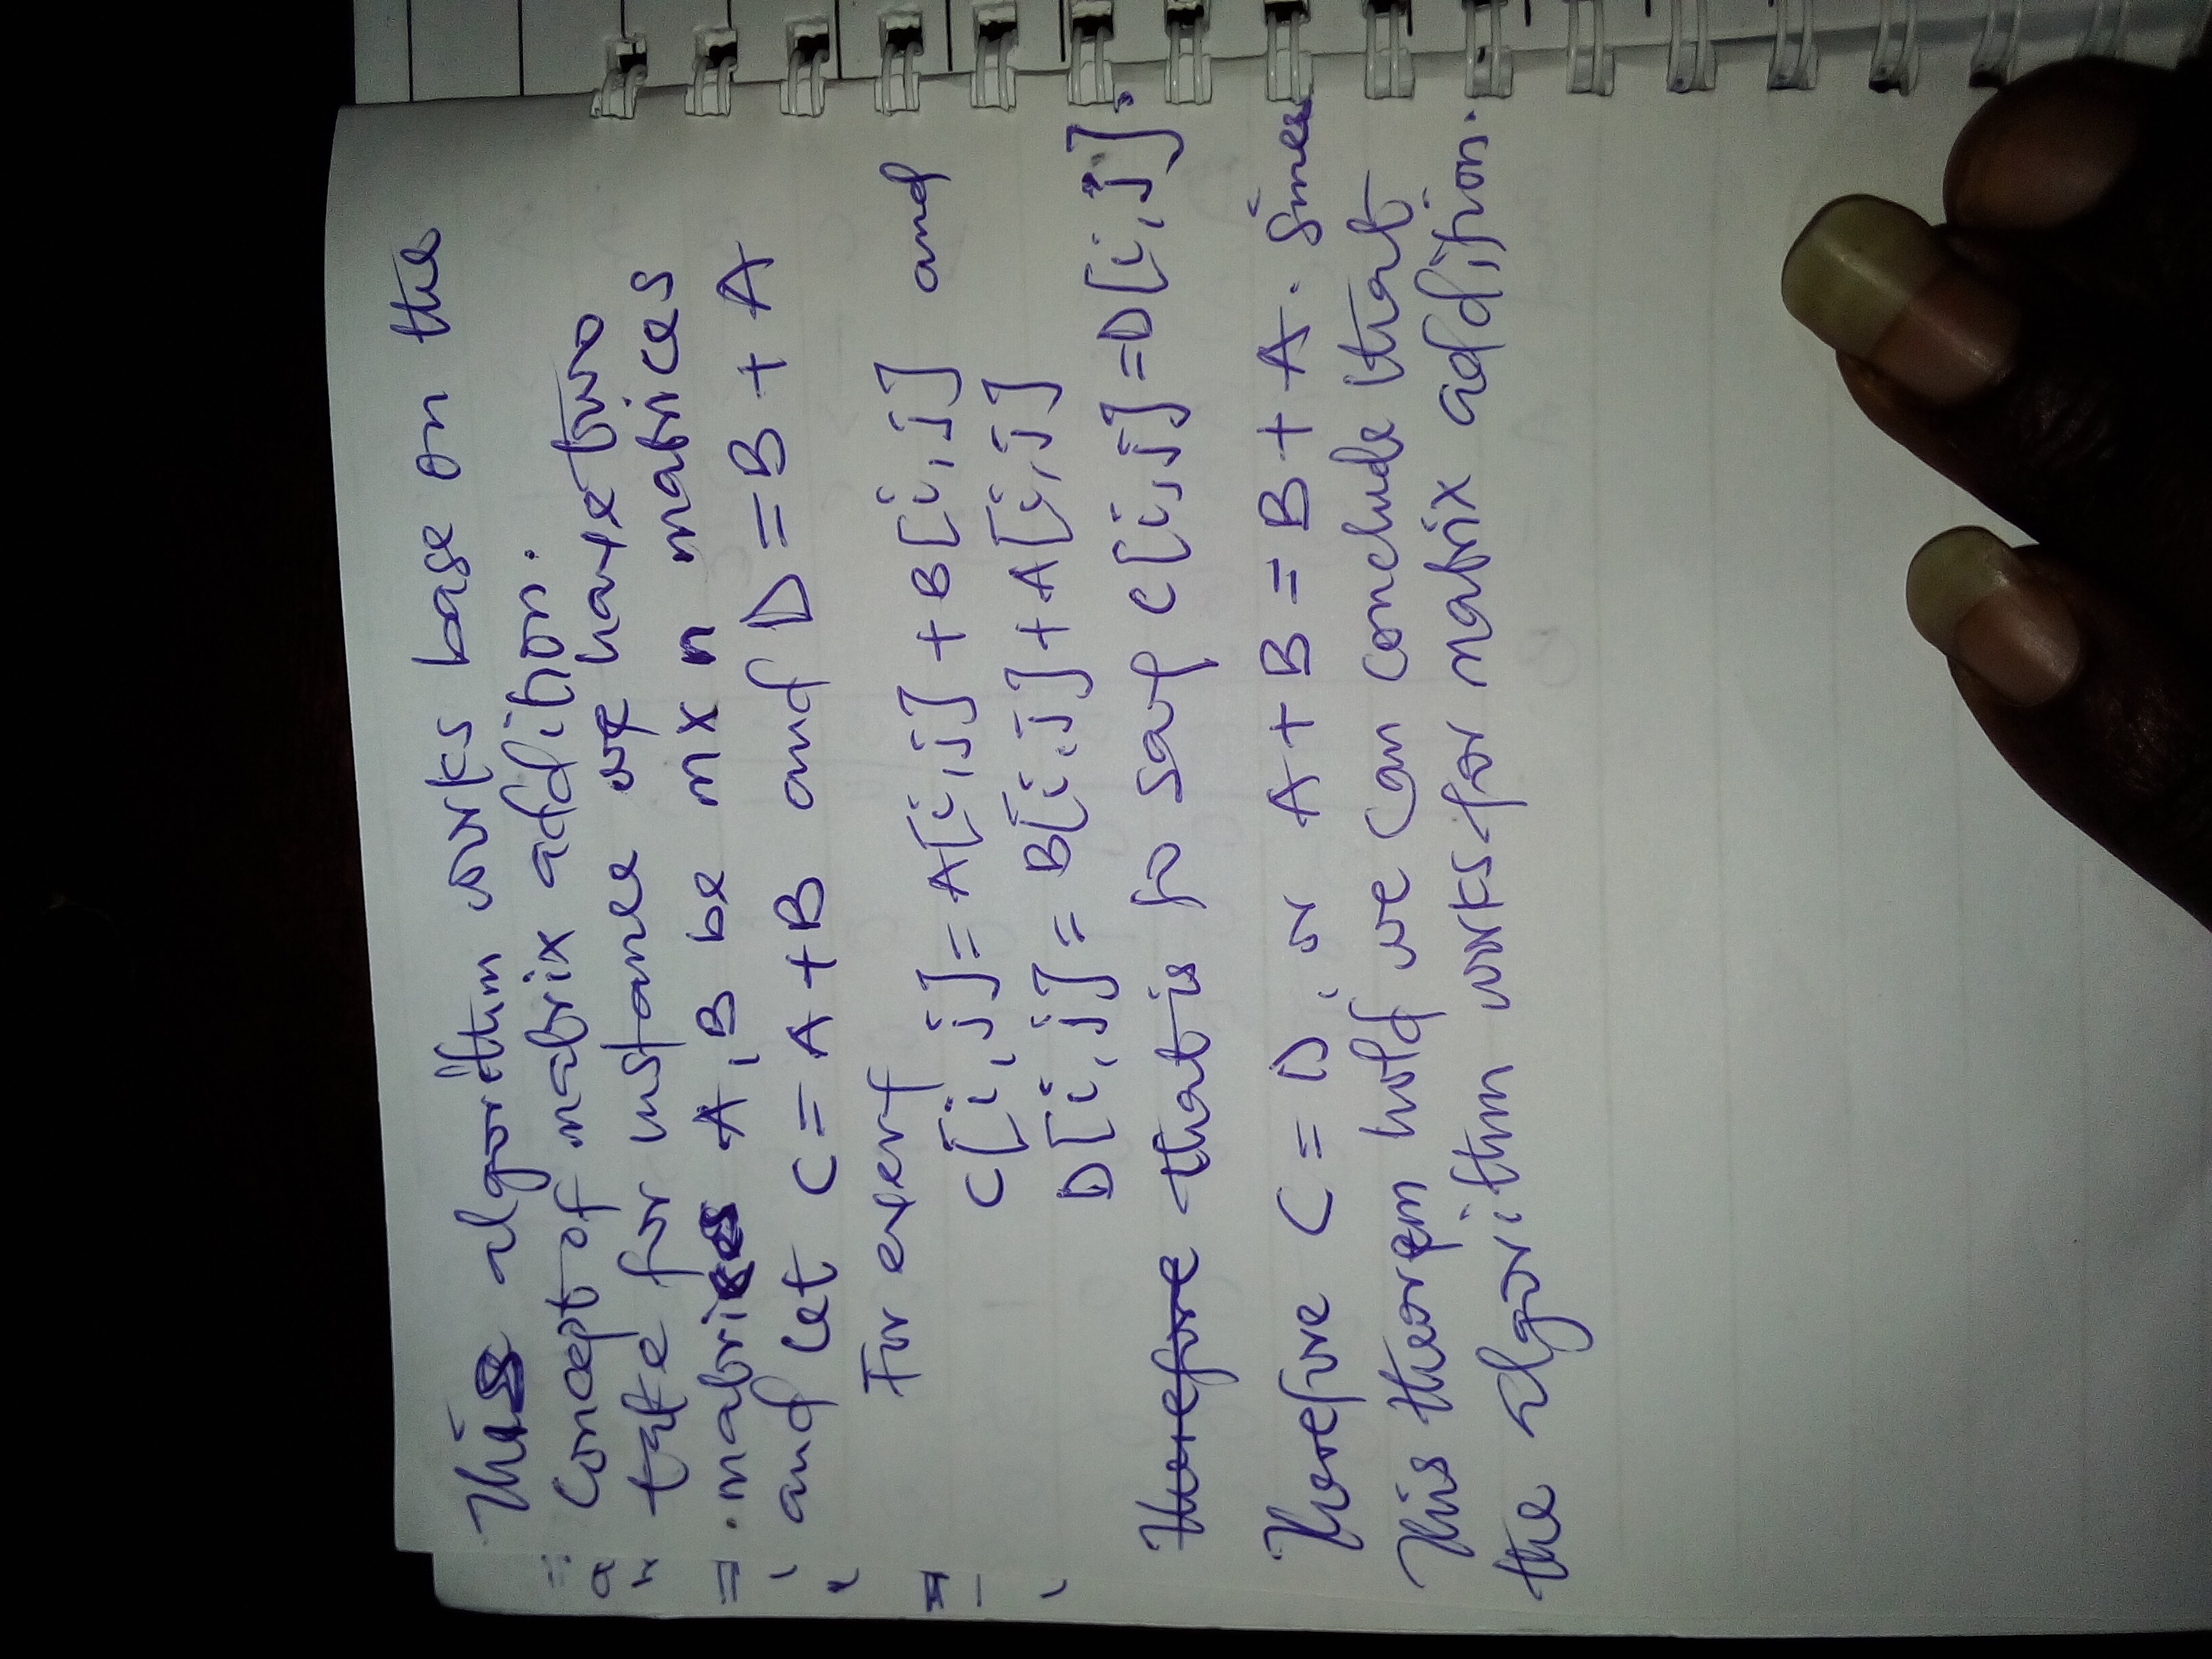 This algorithm works base on the
concept of matrix addition.
take for instance we have two
matrices A, B be m x n matrices
and let C = A + B and D = B + A
For every
C[i, j] = A[i, j] + B[i, j] and
D[i, j] = B[i, j] + A[i, j]
Therefore that is to say C[i, j] = D[i, j].
Therefore C = D, or A + B = B + A. Since
This theorem hold we can conclude that
the algorithm works for matrix addition.